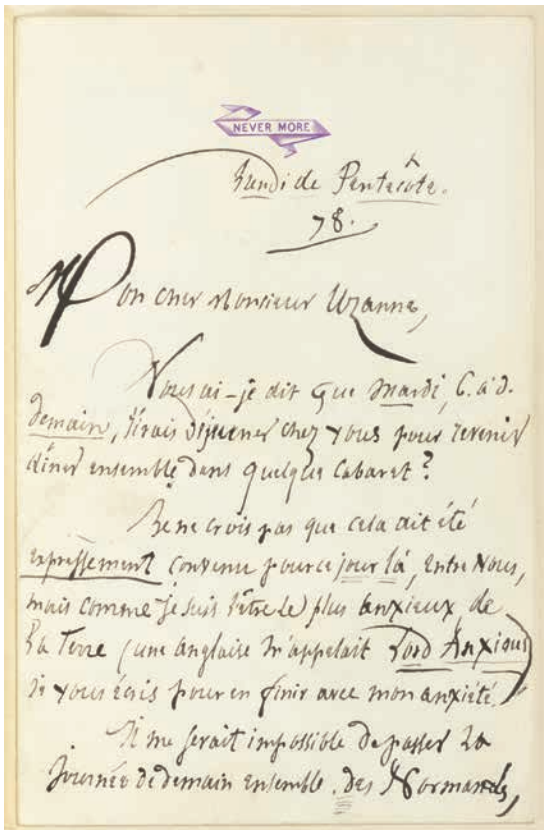 NEVER MORE
Lundi de Pentecôte.
78.
Mon cher Monsieur Uzanne,
Vous ai-je dit que Mardi, C. à d.
Demain, J'irais déjeuner chez vous pour revenir
dîner ensemble dans quelque Cabaret ?
Je ne crois pas que cela ait été
expressément convenu pour ce jour là, entre Nous,
mais comme je suis l'être le plus anxieux de
La Terre (une anglaise m'appelait Lord Anxious)
Je vous écris pour en finir avec mon anxiété.
Il me serait impossible de passer la
Journée de demain ensemble. Des Normands,